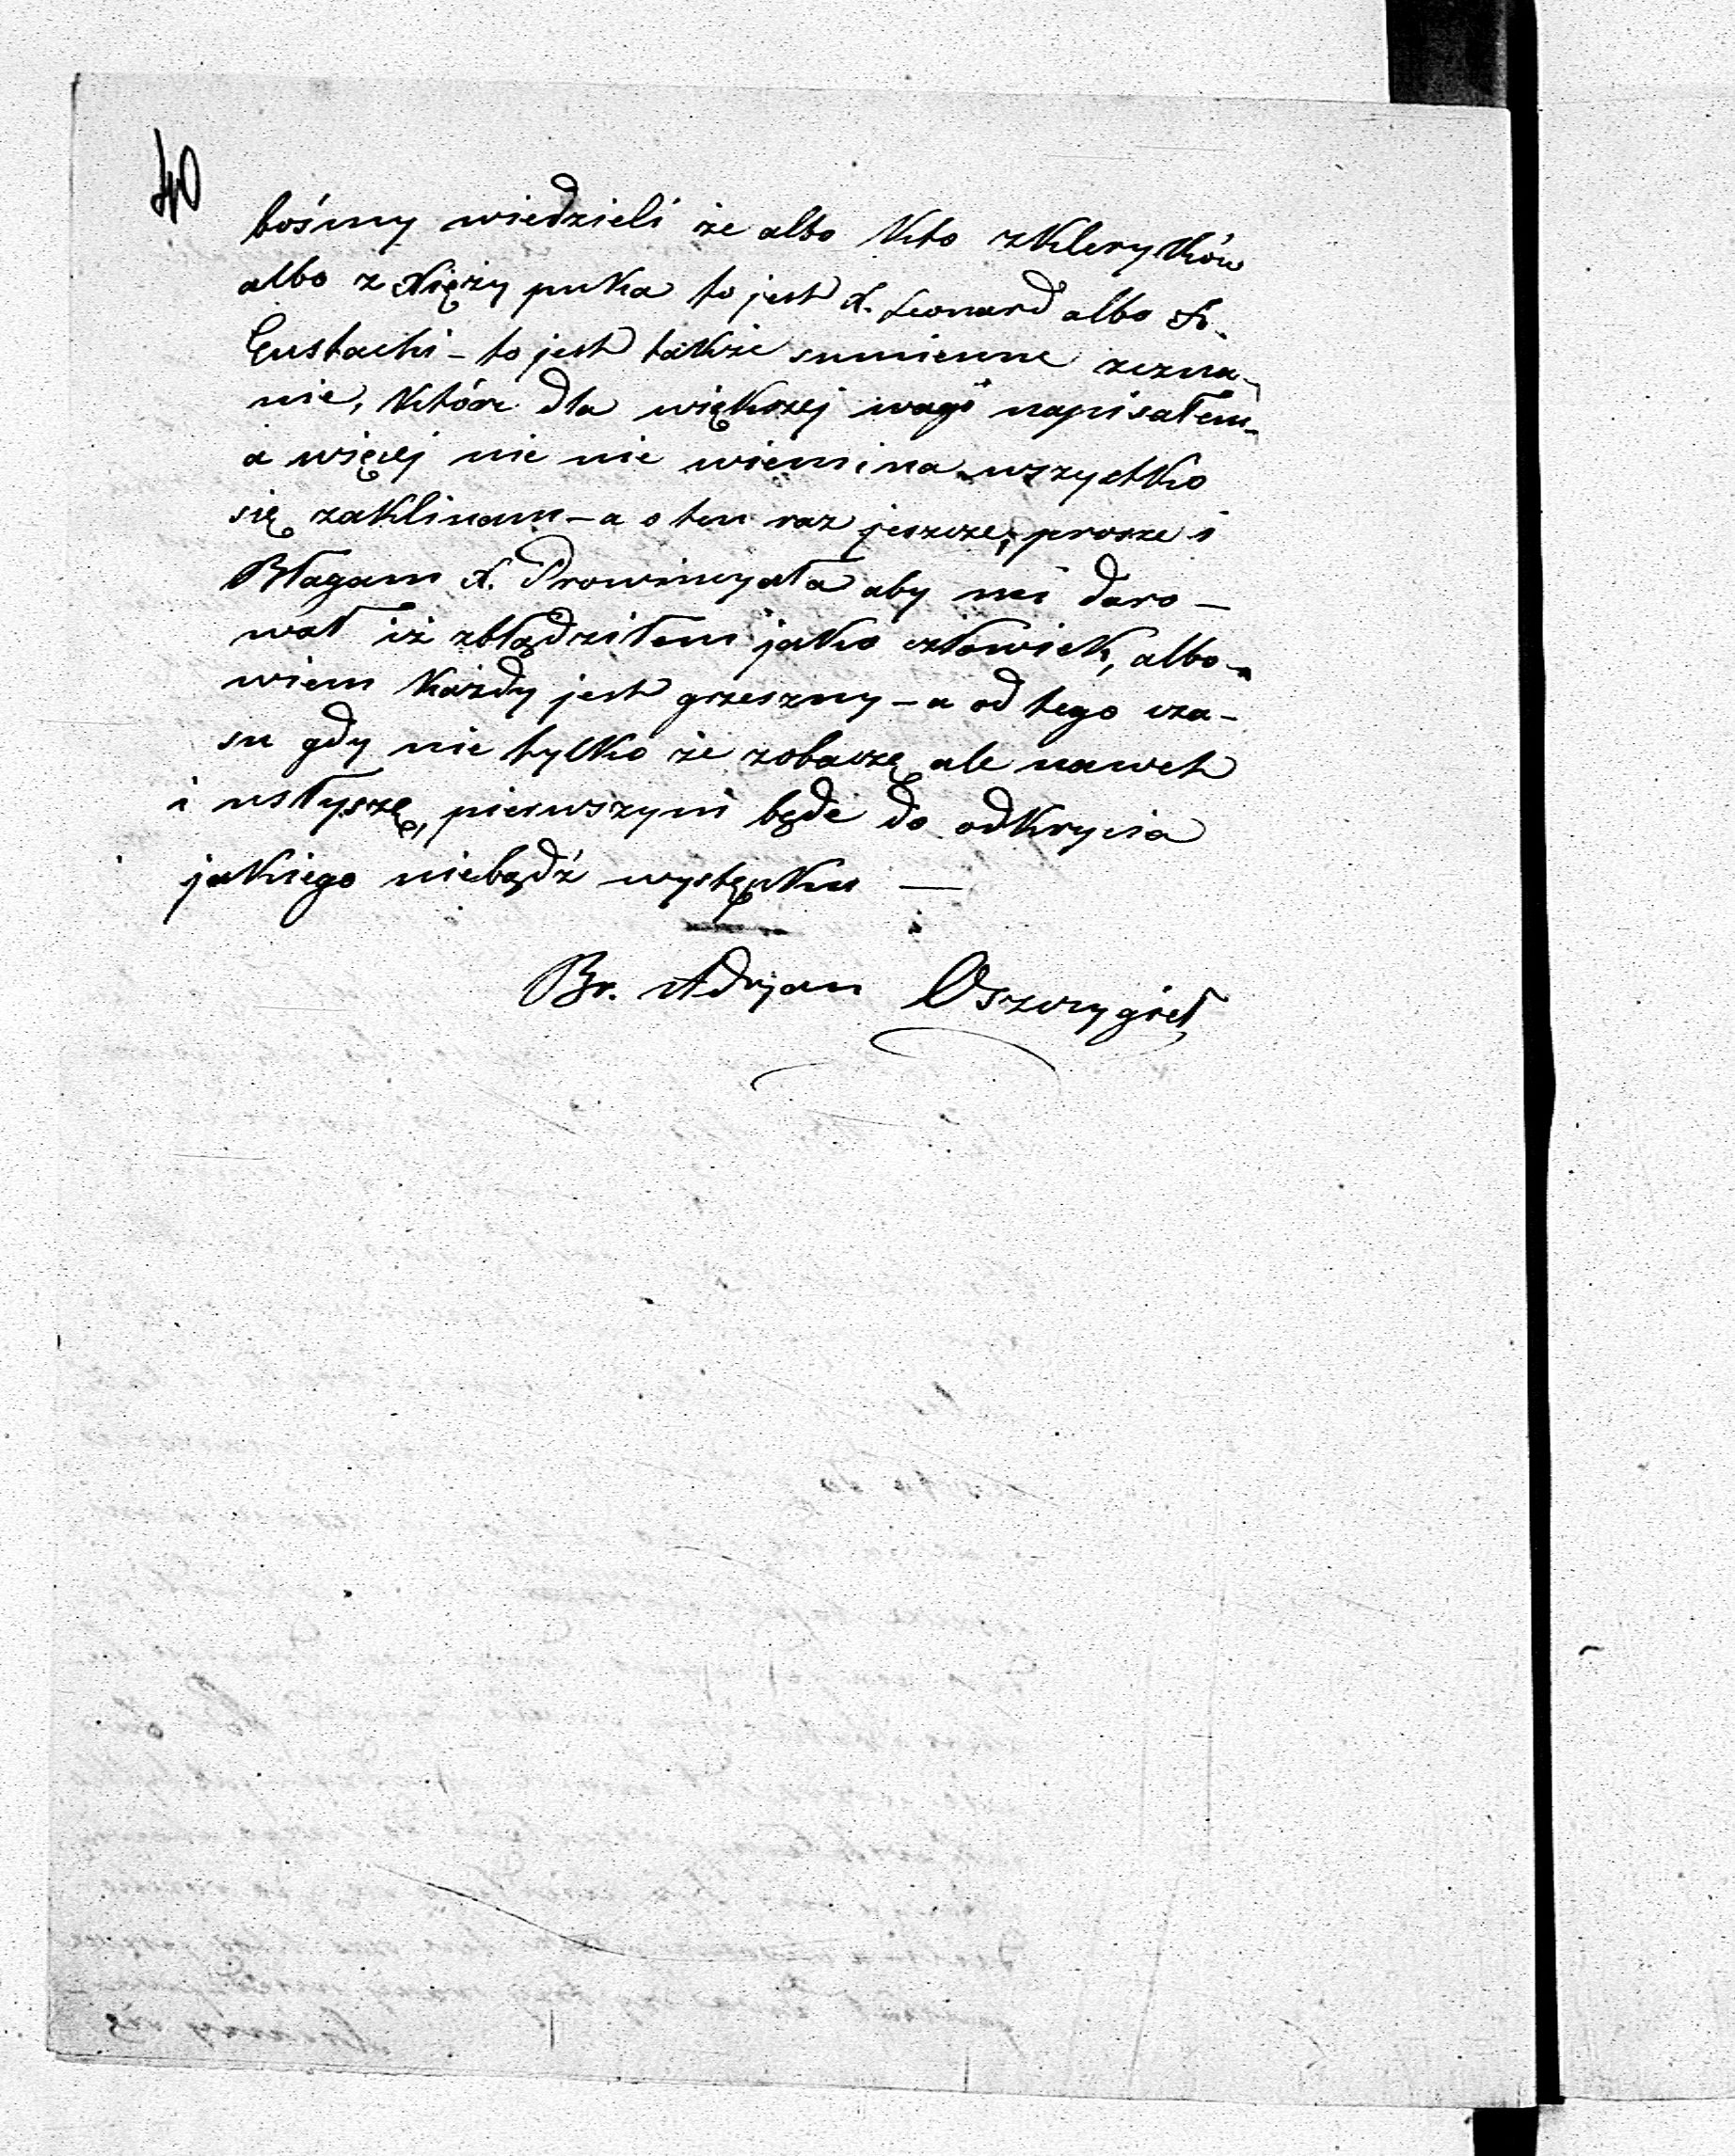 40
bośmy wiedzieli że albo kto z Kleryków
albo z Xięży puka to jest X. Leonard albo
Eustachi – to jest także sumienne zezna-
nie, które dla większej wagi napisałem –
a więcej nic nie wiem i na wszystko
się zaklinam – a o ten raz jeszcze, prosze i
Błagam X. Prowincyała aby mi daro –
wał iż zbłądziłem jako człowiek, albo-
wiem każdy jest grzeszny – a od tego cza-
su gdy nie tylko że zobaczę ale nawet
i usłyszę, pierwszym będe do odkrycia
jakiego niebądź występku —
Br. Adryan Oszczygieł